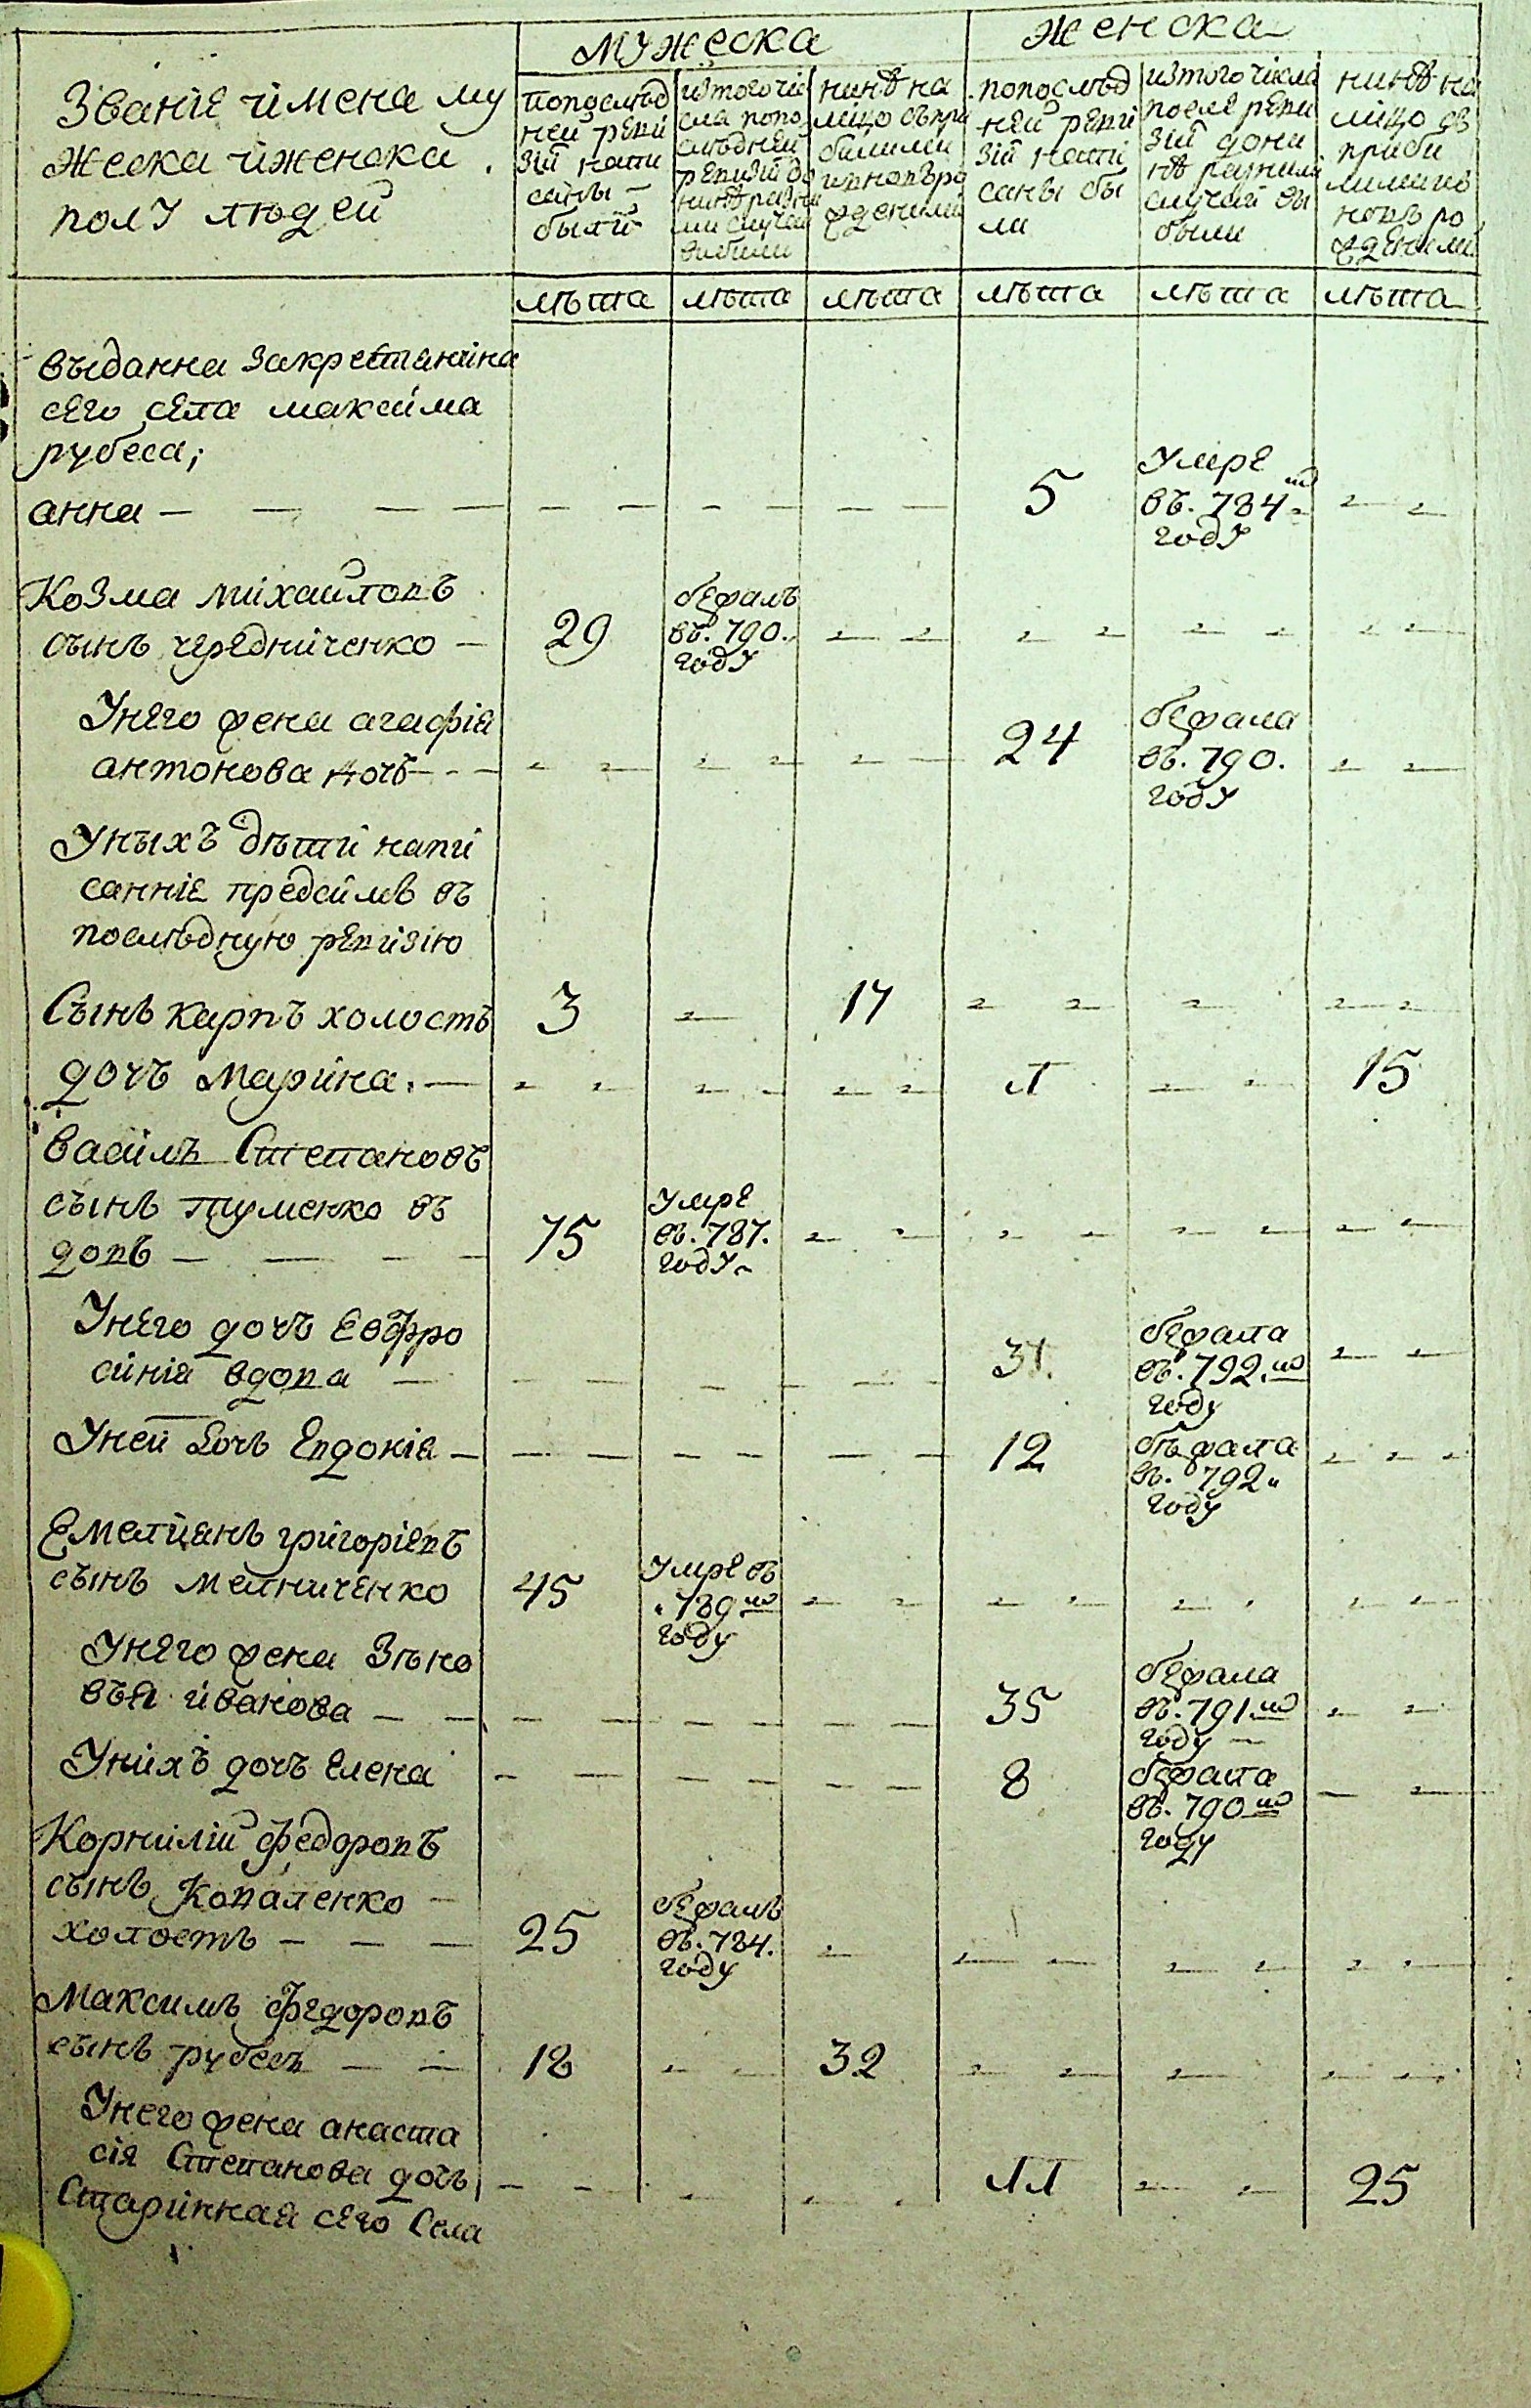 мужеска
женска
Званіе и имена му
жеска и женска
полу людей
попослѣд
ней реви
зіи напи
саны
были
изтого чи
сла попо
слѣдней
ревизіи до
нинѣ разни
ми случаи
вибили
нинѣ на
лицо съ при
билими
и вновъ ро
жденими
попослѣд
ней реви
зіи напи
саны бы
ли
изтого числа
после реви
зіи до ни
нѣ разними
случаи вы
были
нинѣ на
лицо съ
приби
лими и в
новъ ро
жденими
лѣта лѣта лѣта лѣта лѣта лѣта
выданна закрестянина
сего села максима
рубеса;
анна — — — — 5 Умре въ. 784 году
Козма михайловъ
сынъ чередниченко — 29 бежалъ въ. 790. году
Унего жена агафія
антонова дочь 24 бежала въ. 790. году
Уныхъ дѣти напи
санніе предсимъ въ
последную ревизію
Сынъ карпъ холостъ 3 17
дочъ марина. — 1 15
василъ Степановъ
сынъ туменко въ
довъ — — — — 75 умре въ. 787. году
Унего дочъ Евфро
синія вдова — 31. бежала въ. 792. го году
Уней дочъ Евдокія — 12 бѣжала въ. 792 году
Емелиянъ григоріевъ
сынъ мелниченко 45 умре въ 789 го году
Унего жена Зѣно
вѣя иванова — — 35 бежала въ. 791. го году
Унихъ дочъ елена 8 бежала въ. 790 го году
Корнилій федоровъ
сынъ Коваленко —
холостъ — — — 25 бежалъ въ. 784. году
Максимъ федоровъ
сынъ рубесъ — — 18 32
Унего жена анаста
сія Степанова дочъ 11 25
Старинная сего Села